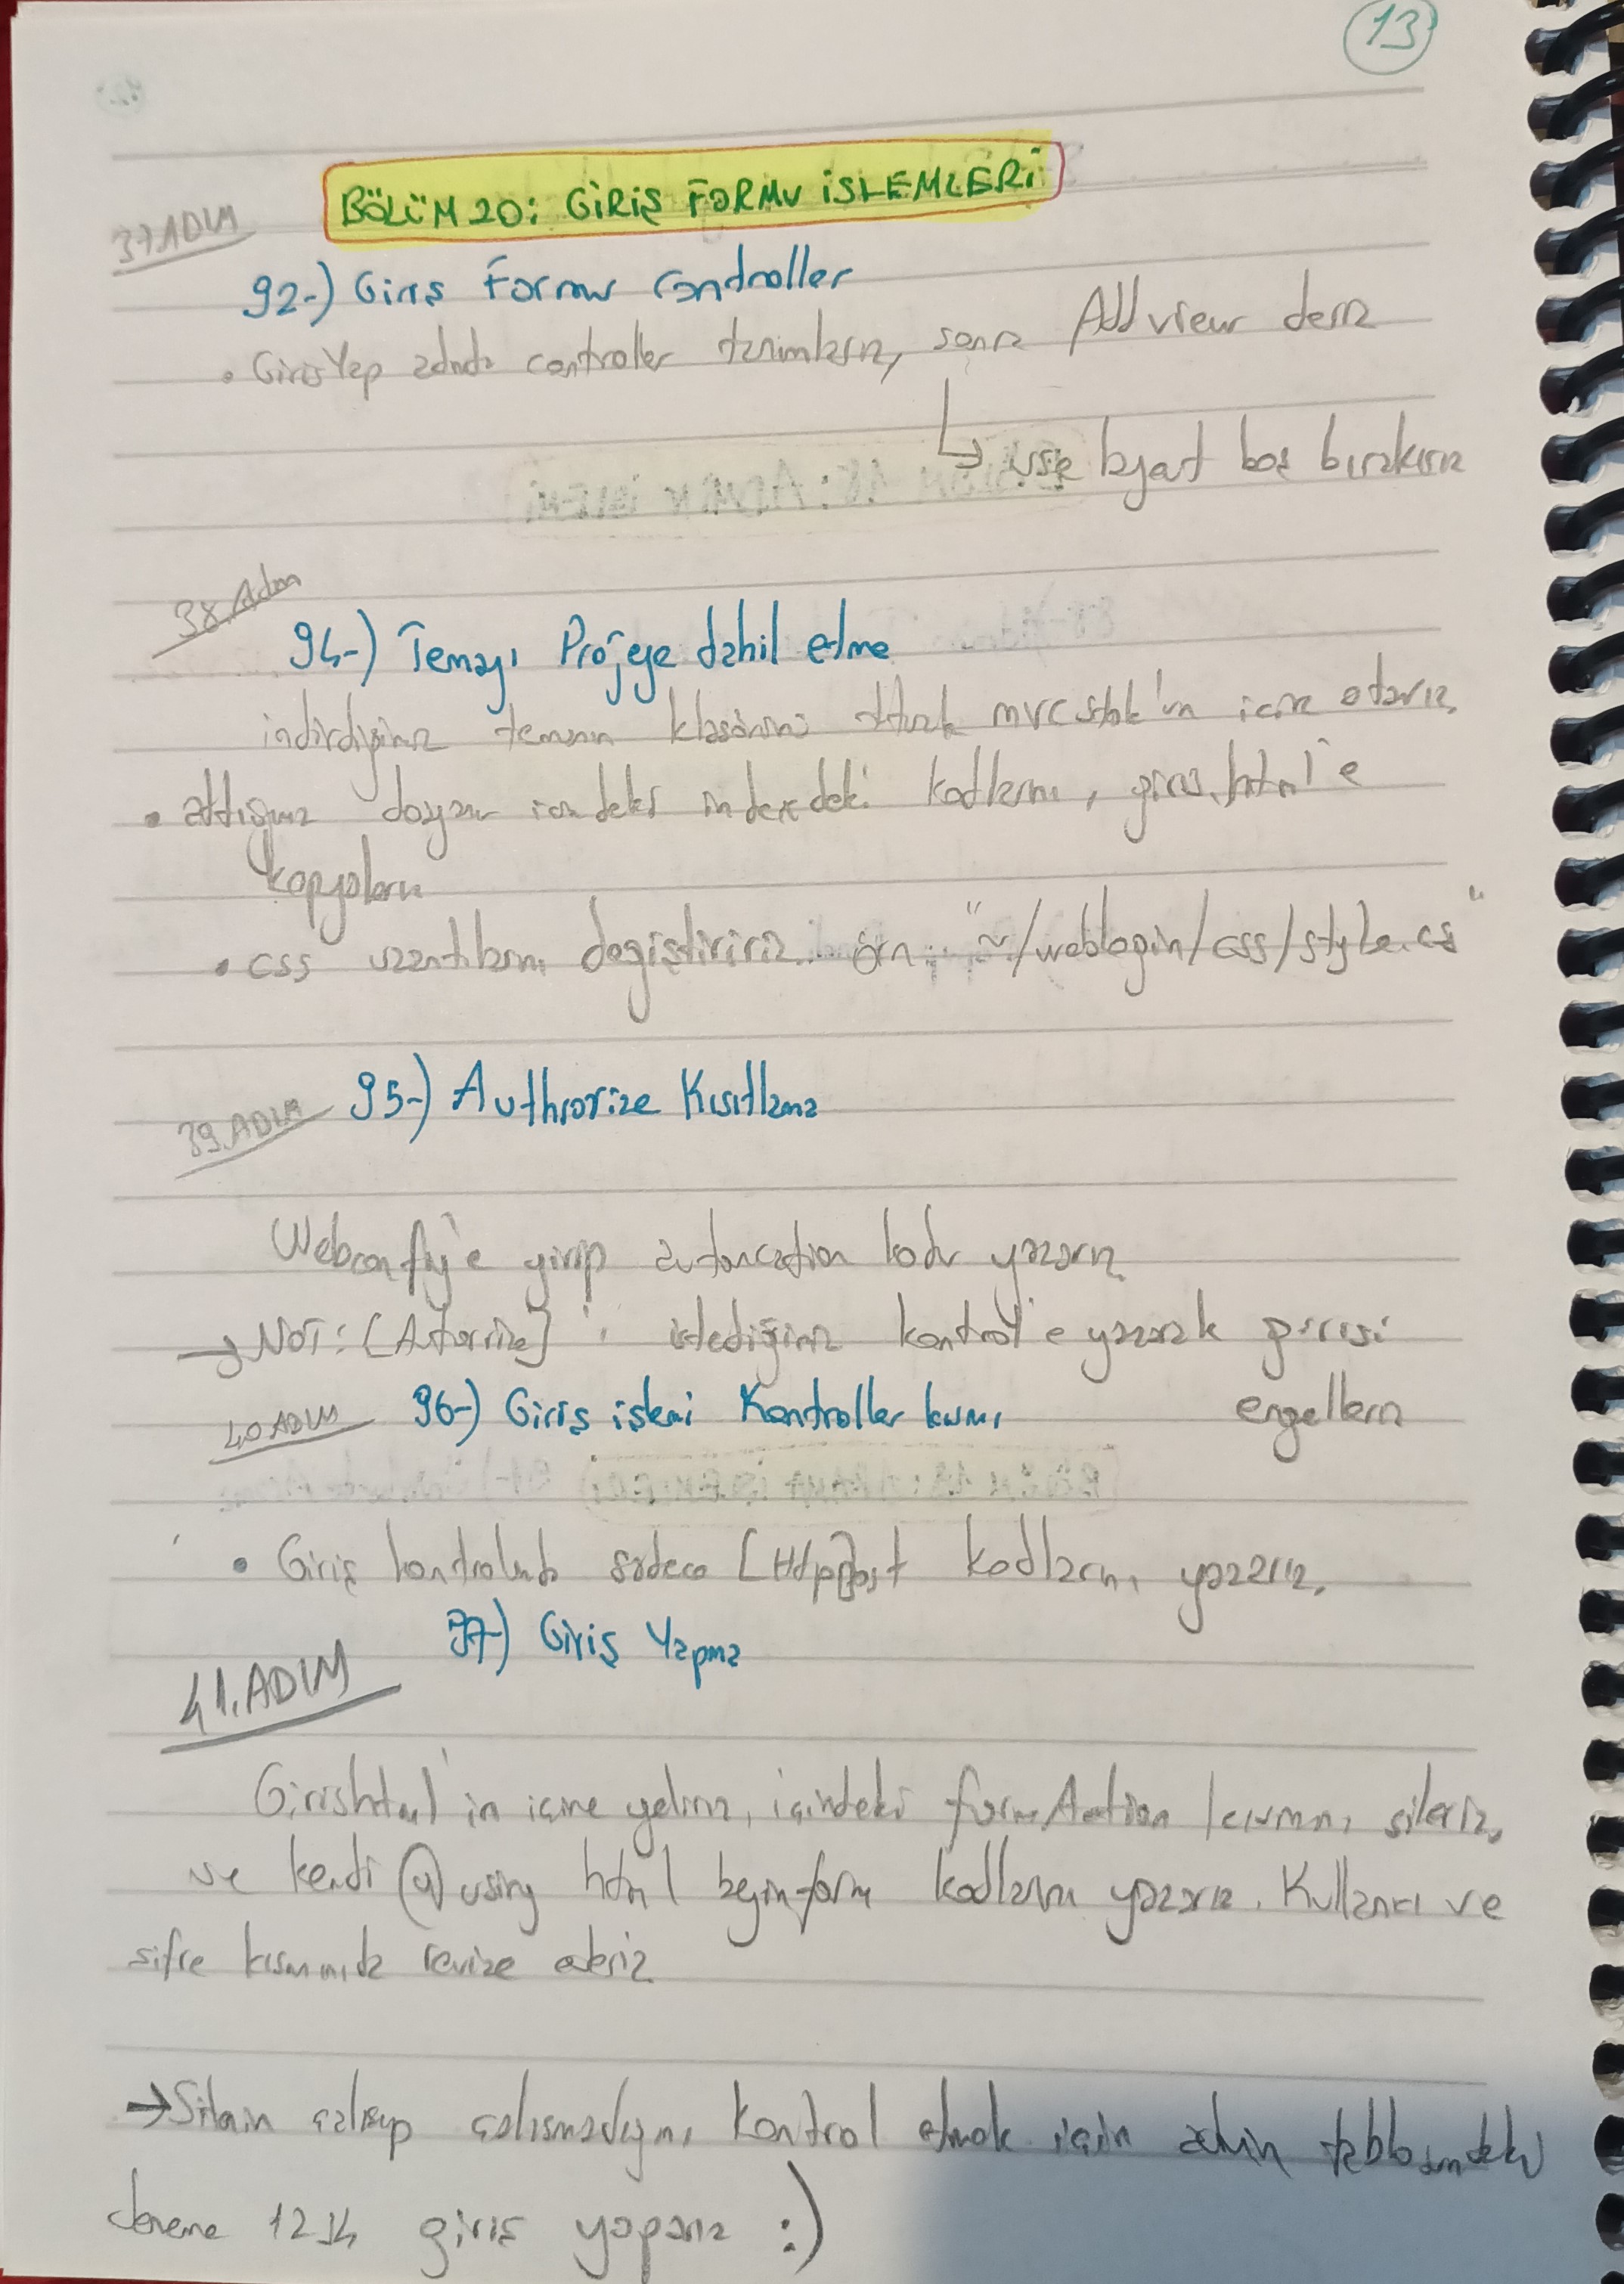 13
BÖLÜM 20: GİRİŞ FORMU İSLEMLERİ
37.ADIM
92-) Giriş Formu Controller
• GirisYap adında controller tanımlarız, sonra Add view deriz
↳ use layout boş bırakırız
38.Adım
94-) Temayı Projeye dahil etme
indirdiğimiz temanın klasörünü mvcstok'un içine atarız.
• attığımız dosyanın içindeki indexdeki kodlarını, giris.html'e
kopyalarız
• css uzantılarını değiştiririz. örn: "~/weblogin/css/style.css"
39.ADIM
95-) Authrorize Kısıtlama
Webconfig'e girip kodu yazarız
→ NOT: [Autorize]'i istediğimiz kontrol'e yazarak girişi
engelleriz
40 ADIM
96-) Giris islemi Kontroller kısmı
• Giriş kontrolunda sadece [HttpPost kodlarını yazarız.
97-) Giriş Yapma
41.ADIM
Girishtml'in içine geliriz, içindeki formAction kısmını sileriz,
ve kendi @using html beginform kodlarını yazarız. Kullanıcı ve
sifre kısmınıda revize ederiz
→ Sitenin çalışıp çalışmadığını kontrol etmek için admin tablosundeki
deneme 1234 giriş yaparız :)